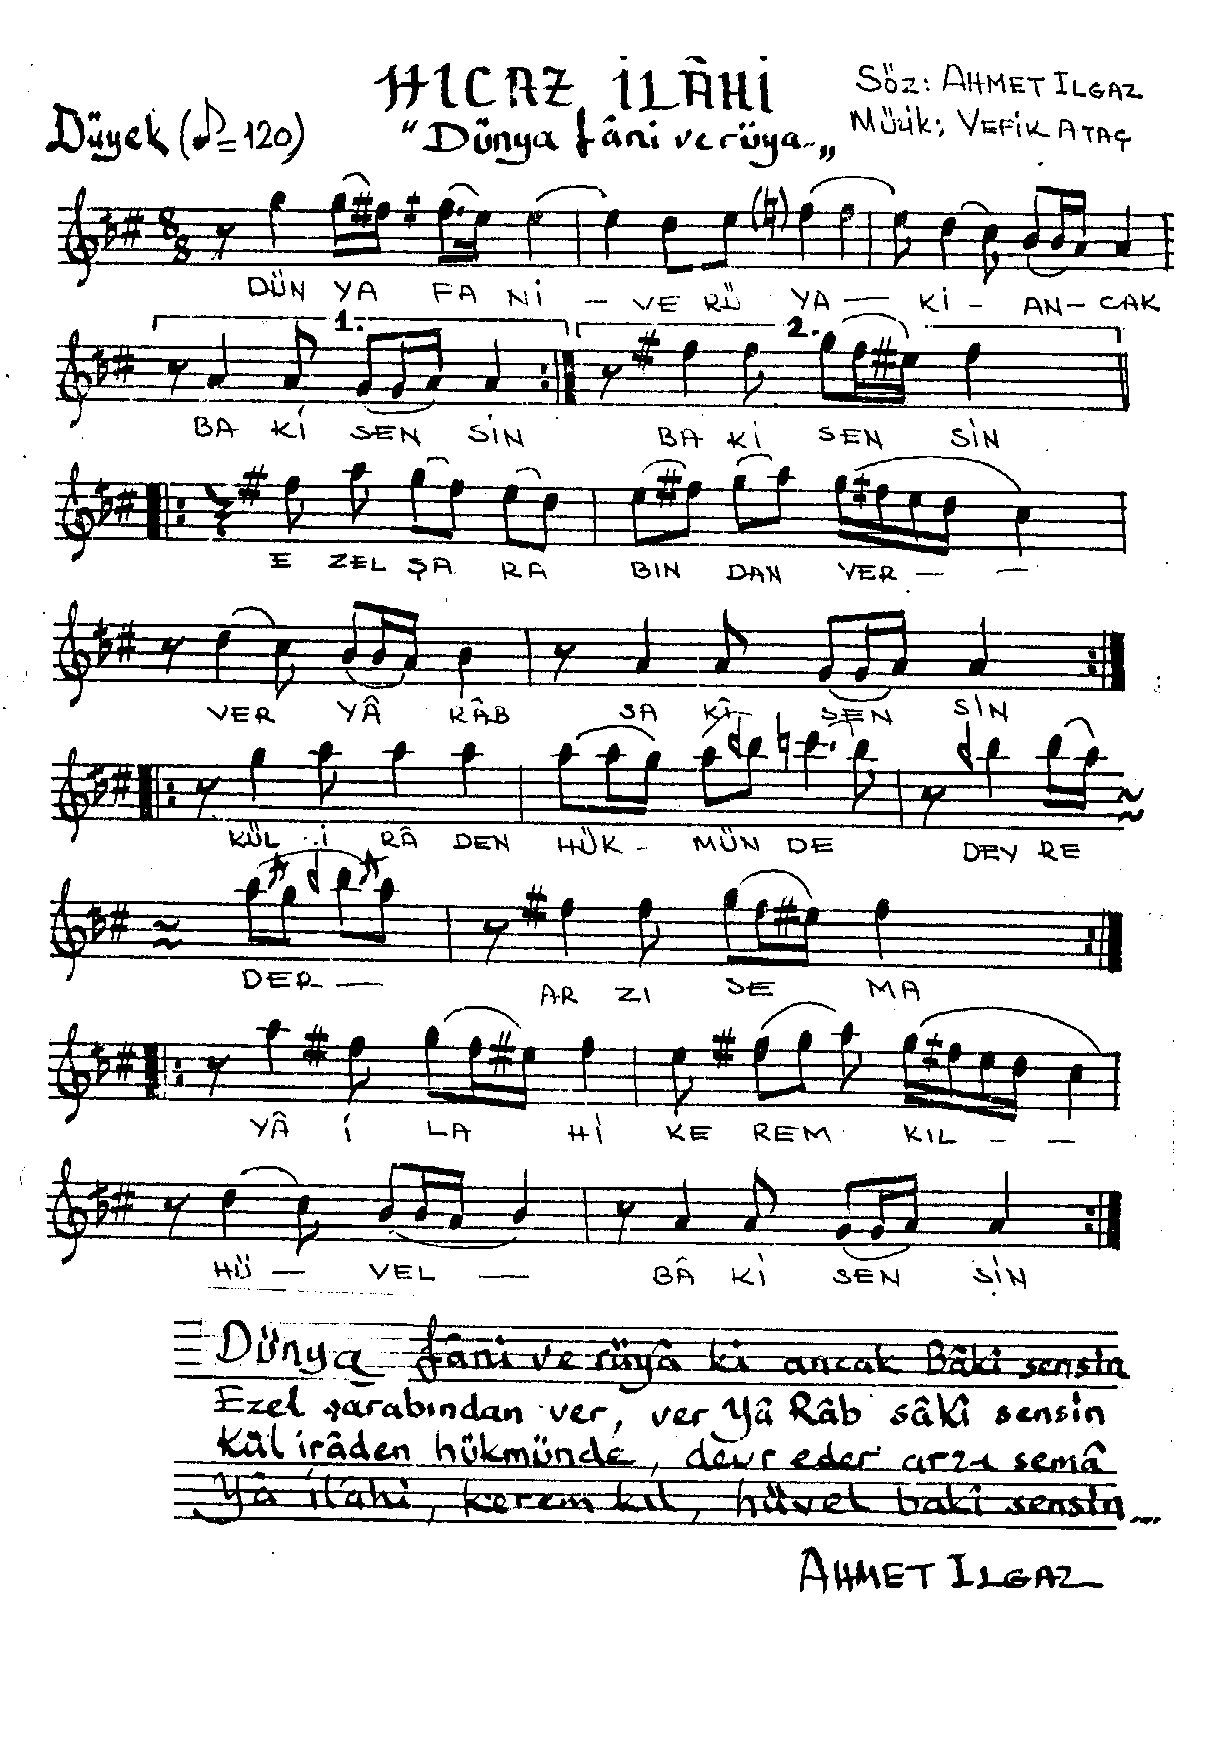 HİCAZ İLÂHİ
SÖZ: AHMET ILGAZ
Düyek (♪=120)
"Dünya fâni ve rüya..„
MÜÜİK; VEFİK ATAÇ
8
8
DÜN YA FA NI — VE RÜ YA — KI - AN - CAK
1. 2.
BA KI SEN SİN BA KI SEN SİN
E ZEL ŞA RA BIN DAN VER — —
VER YÂ RÂB SA KÎ SEN SİN
KÜL İ RÂ DEN HÜK - MÜN DE DEV RE
DER — AR ZI SE MA
YÂ İ LA HI KE REM KIL - —
HÜ — VEL — BÂ KI SEN SİN
Dünya fâni ve rüyâ ki ancak Bâki sensin
Ezel şarabından ver, ver Yâ Râb sâkî sensin
Kül irâden hükmünde, devr eder arz-ı semâ
Yâ ilâhi, kerem kıl, hüvel bakî sensin...
AHMET ILGAZ